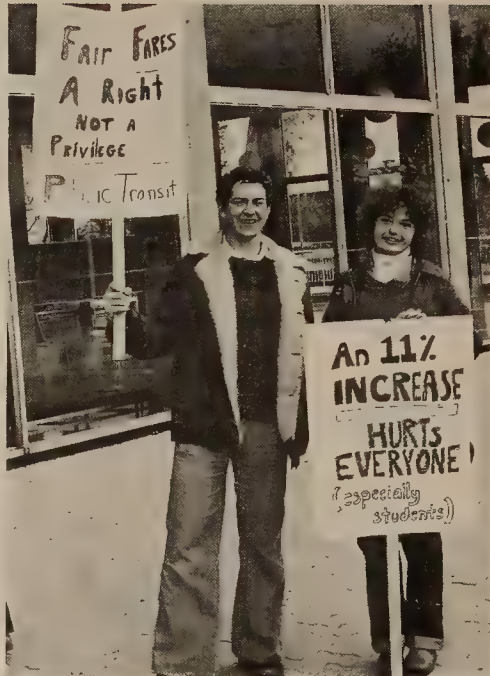 FAIR FARES
A RIGHT
NOT A
PRIVILEGE
Transit
An 11%
INCREASE
HURTS
EVERYONE!
(especially
students)